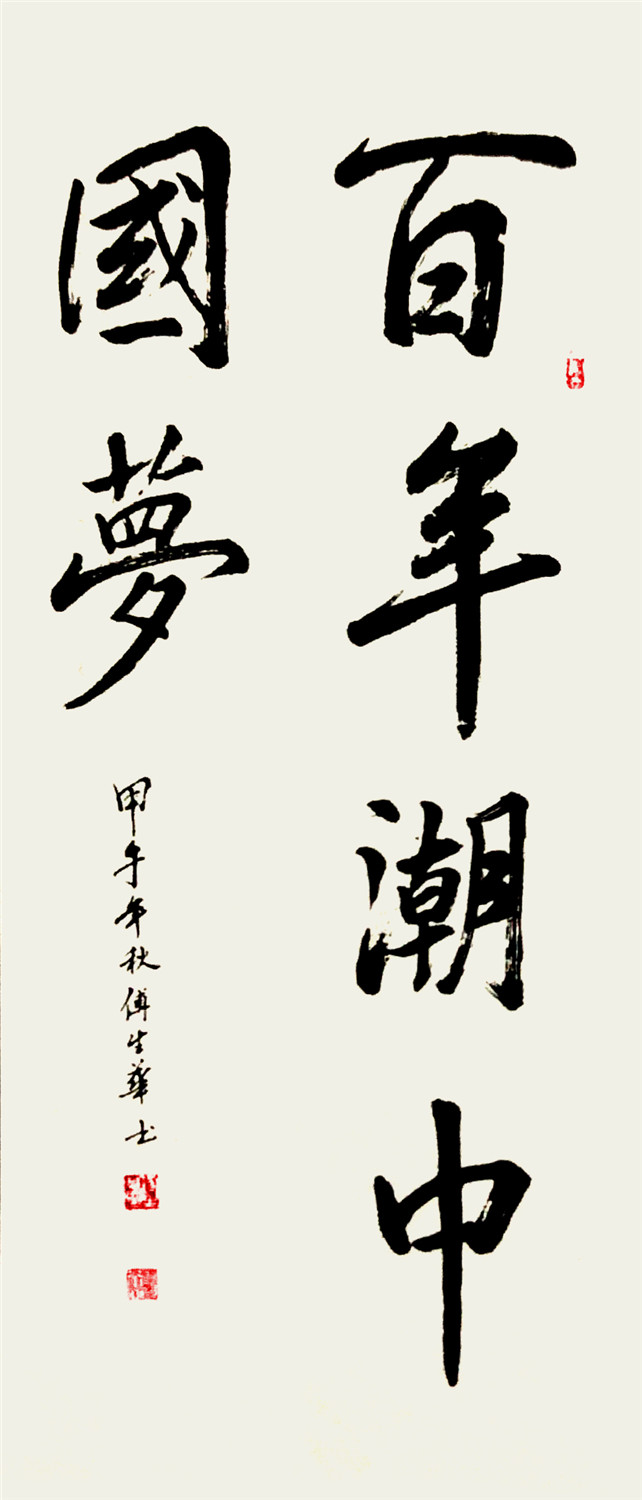 百年潮中
國夢
甲午年秋傅生華书